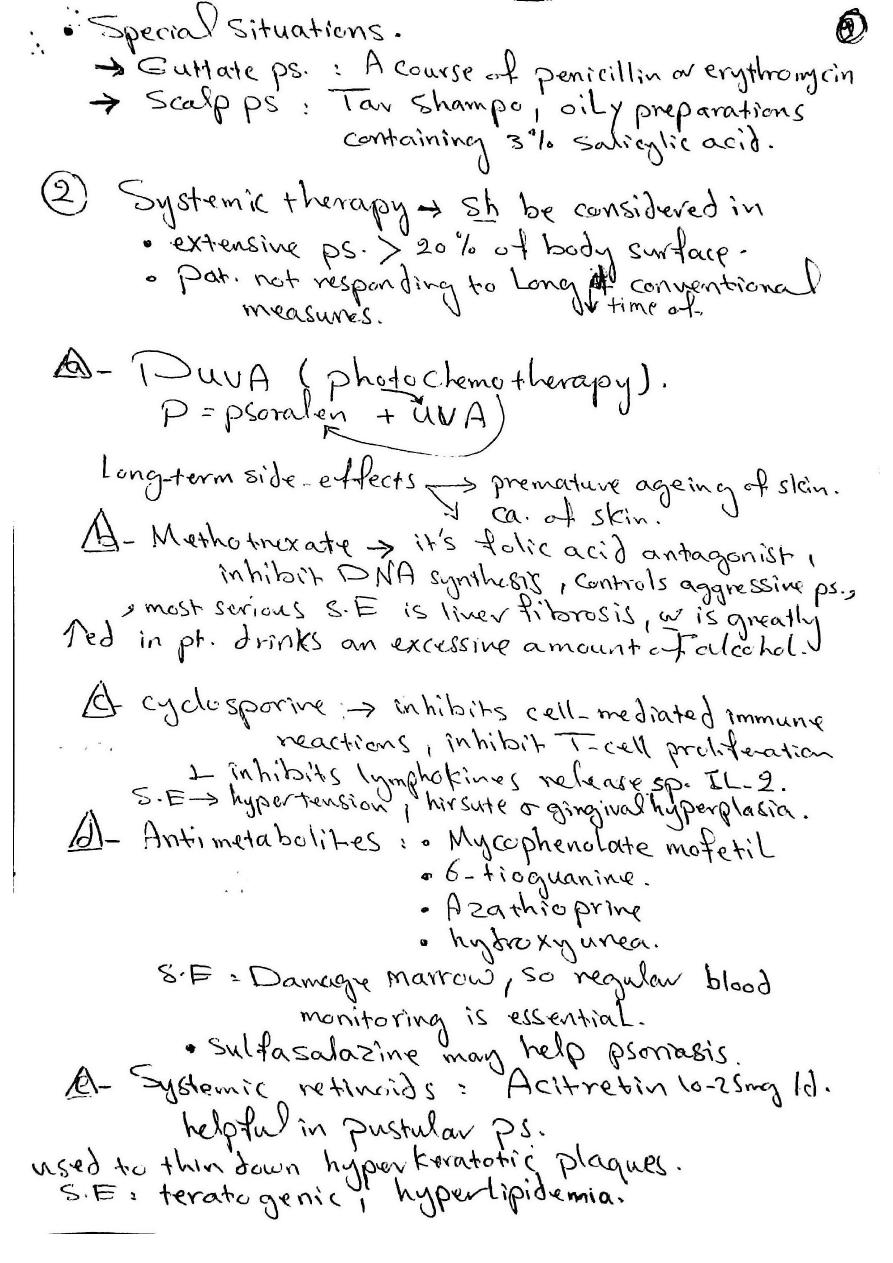 • Special Situations. 9
→ Guttate ps. : A course of penicillin or erythromycin
→ Scalp ps : Tar shampo, oily preparations
containing 3% salicylic acid.
② Systemic therapy → sh be considered in
• extensive ps. > 20% of body surface.
• pat. not responding to Long conventional
measures. ↓ time of
a- PUVA (photochemotherapy).
P = psoralen + UVA)
Long-term side-effects → premature ageing of skin.
↘ ca. of skin.
b- Methotrexate → it's folic acid antagonist,
inhibit DNA synthesis, controls aggressive ps.,
, most serious S.E is liver fibrosis, w is greatly
↑ed in pt. drinks an excessive amount of alcohol.
c- cyclosporine :→ inhibits cell-mediated immune
reactions, inhibit T-cell proliferation
& inhibits lymphokines release sp. IL-2.
S.E → hypertension, hirsute or gingival hyperplasia.
d- Antimetabolites : • Mycophenolate mofetil
• 6-tioguanine.
• Azathioprine
• hydroxyurea.
S.E : Damage marrow, so regular blood
monitoring is essential.
• sulfasalazine may help psoriasis.
e- Systemic retinoids : Acitretin 10-25mg /d.
helpful in pustular ps.
used to thin down hyperkeratotic plaques.
S.E : teratogenic, hyperlipidemia.